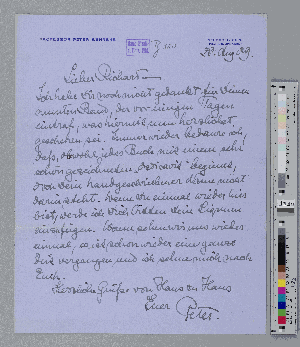 PROFESSOR PETER BEHRENS
23. Aug. 29.
Lieber Richard
Ich habe Dir noch nicht gedankt für Deinen
neunten Band, der vor einigen Tagen
eintraf, was hiermit herzlichst
geschehen sei. Immer wieder bedaure ich,
daß, obwohl jedes Buch mit einem sehr
schön gezeichneten beginnt,
von Dein handgeschriebener
darin steht. Wenn Du einmal wieder hier
bist, werde ich Dich bitten Dein Signum
einzufügen. Wann sehen wir uns wieder
einmal, es ist schon wieder eine ganze
Zeit vergangen und ich sehne mich nach
Euch.
Herzliche Grüße von Haus zu Haus
Euer Peter